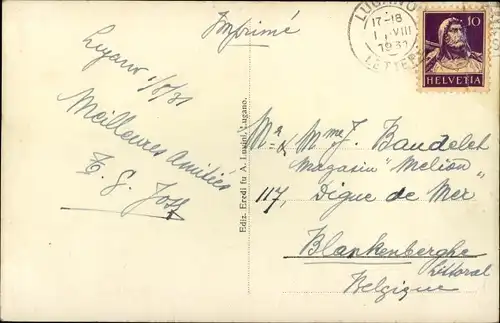 Imprimé
LUGANO
17-18
1. VIII
1931
LETTERE
10
HELVETIA
Lugano 1/8/31
Meilleures Amitiés
Ediz. Eredi fu A. Lugini, Lugano.
Mr & Mme J. Baudelet
Magasin "Melion"
117, Digue de Mer
Blankenberghe
Littoral
Belgique